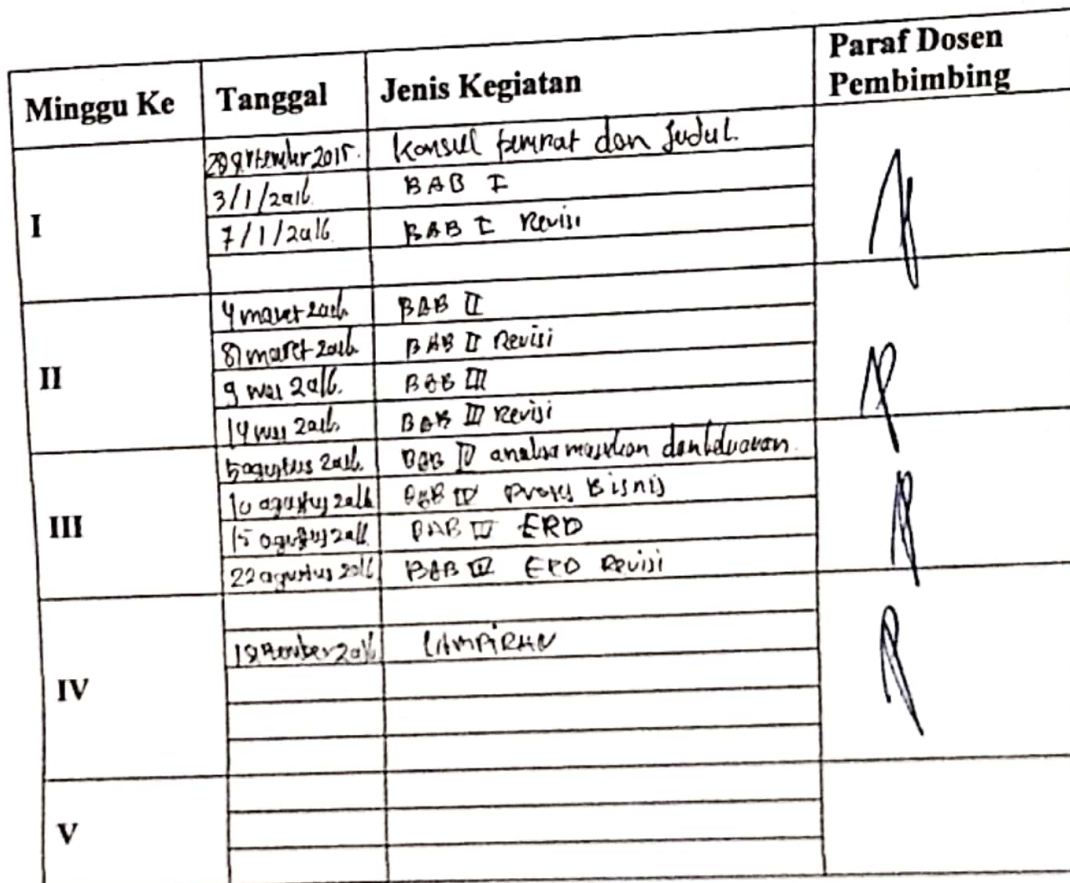 Minggu Ke Tanggal Jenis Kegiatan Paraf Dosen
Pembimbing
I
28 September 2015. Konsul format dan Judul.
3/1/2016. BAB I
7/1/2016. BAB I Revisi
II
4 maret 2016. BAB II
8 maret 2016. BAB II Revisi
9 mei 2016. BAB III
14 mei 2016. BAB III Revisi
III
5 agustus 2016. BAB IV analisa masukan dan keluaran.
10 agustus 2016 BAB IV Proses Bisnis
15 agustus 2016. BAB IV ERD
22 agustus 2016 BAB IV ERD Revisi
IV
2016 LAMPIRAN
V